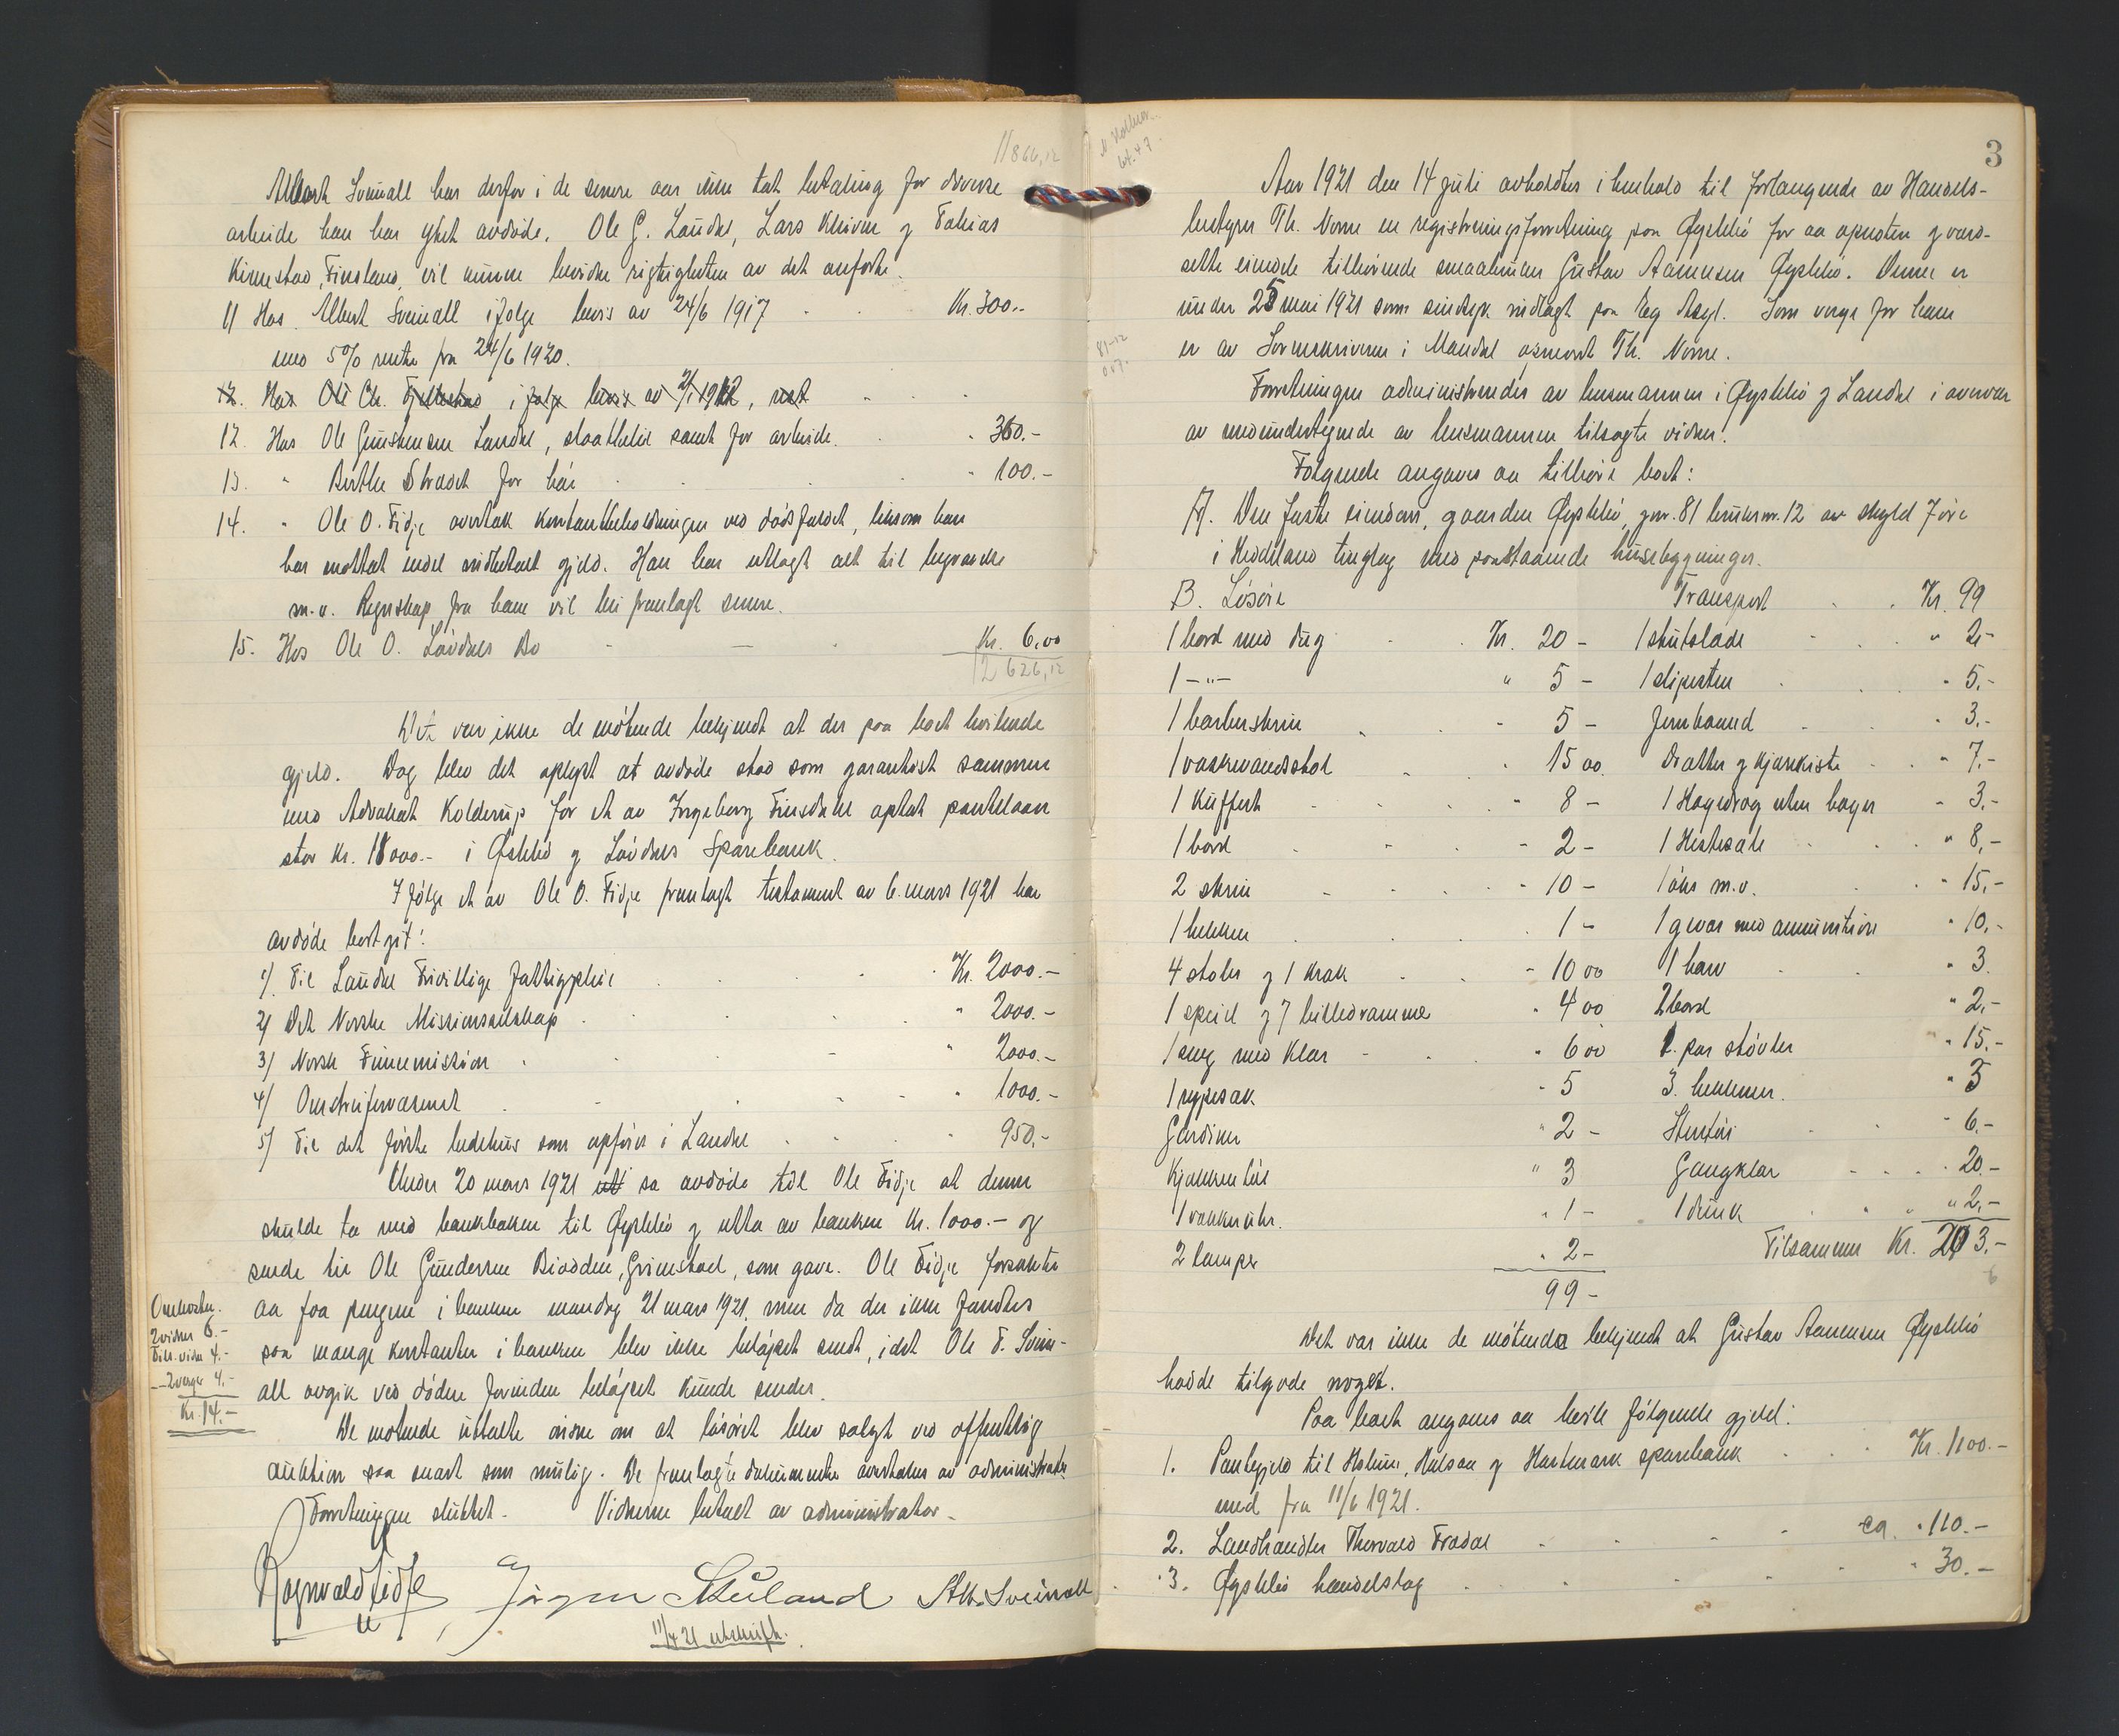 11866,12
Albert Sveinall har derfor i de senere aar ikke tat betaling for diverse
arbeide han har ydet avdøde. Ole G. Laudal, Lars Kleiven og Tobias
Kirkestad, Finsland, vil kunne bevidne rigtigheten av det anførte.
11 Hos Albert Sveinall ifølge bevis av 24/6 1917 Kr. 300.-
med 5% rente fra 24/6 1920.
12. Hos Ole Ch. i følge bevis av
12. Hos Ole Laudal, samt for arbeide. 360.-
13. " for høi " 100.-
14. " Ole O. Fidje overtok kontantbeholdningen ved dødsfaldet, liksom han
har mottat endel indbetalt gjeld. Han har utlagt alt til begravelse
m.v. Regnskap fra ham vil bli fremlagt senere.
15. Hos Ole O. Løvdals Bo Kr. 6,00
12626,12
Det var ikke de møtende bekjendt at der paa boet hvilende
gjeld. Dog blev det oplyst at avdøde stod som garantist sammen
med Advokat Kolderup for et av Ingeborg Finsdal optat pantelaan
stor Kr. 18000.- i Øslebø og Løvdals Sparebank.
Ifølge et av Ole O. Fidje fremlagt testament av 6. mars 1921 har
avdøde bortgit:
1/. Til Laudal Frivillige fattigpleie Kr. 2000.-
2/ Det Norske Missionsselskap " 2000.-
3/ Norsk Finnemission " 2000.-
4/ Omstreifervæsenet " 1000.-
5/ Til det første bedehus som opføres i Laudal " 950.-
Under 20 mars 1921 sa avdøde til Ole Fidje at denne
skulde ta med bankboken til Øyslebø og utta av banken Kr. 1000.- og
sende til Ole Gundersen, Grimstad, som gave. Ole Fidje forsøkte
aa faa pengene i banken mandag 21 mars 1921, men da der ikke fandtes
saa mange kontanter i banken blev ikke beløpet sendt, idet Ole T. Svein-
all avgik ved døden forinden beløpet kunde sendes.
De møtende uttalte ønske om at løsøret blev solgt ved offentlig
auktion saa snart som mulig. De fremlagte dokumenter overtokes av administrator
Forretningen sluttet. Vidnerne betalt av administrator.
Omkostn.
2 vidner 6.-
Till. vidn 4.-
2 verger 4.-
Kr. 14.-
Ragnvald Fidje Jørgen Stuland Alb. Sveinall
11/4 21 utskrift.
3
Aar 1921 den 14 juli avholdtes i henhold til forlangende av Handels-
bestyrer Th. Nome en registreringsforretning paa Øyslebø for aa opnotere og værd-
sette eiendele tilhørende smaabruker Gustav Aanensen Øyslebø. Denne er
under 25 mai 1921 som sindssyk indlagt paa Eg Asyl. Som verge for ham
er av Sorenskriveren i Mandal opnævnt Th. Nome.
Forretningen administrerdes av lensmannen i Øyslebø og Laudal i overvær
av medundertegnede av lensmannen tilsagte vidner.
Følgende angaves aa tilhøre boet:
A. Den faste eiendom, gaarden Øyslebø, gnr. 81 bruksnr. 12 av skyld 7 øre
i Heddeland tinglag med paastaaende husebygninger.
B. Løsøre Transport Kr. 99
1 bord med dug Kr. 20 - 1 skutslade " 2,-
1 -"- " 5 - 1 slipesten " 5.-
1 barberskrin " 5 - Jernbaand " 3.-
1 vaskevandsstol " 15 00 og kjørekiste " 7.-
1 Kuffert " 8 - 1 uten bøger " 3.-
1 bord " 2 - 1 Hestesæle " 8,-
2 skrin " 10 - 1 øks m.v. " 15,-
1 bekken 1 - 1 gevær med ammunition " 10,-
4 stoler og 1 krak " 10 00 1 harv " 3.
1 speil og 7 billedrammer " 4 00 2 bord " 2,-
1 seng med Klær " 6 00 1. par støvler " 15.-
1 rypesæk " 5 3. bekkener. " 3
Gardiner " 2 - Stentøi " 6.-
Kjøkkentøi " 3 Gangklær " 20.-
1 vækkeruhr. " 1 - 1 dunk " 2,-
2 lamper " 2 - Tilsammen Kr. 203.-
99 -
Det var ikke de møtende bekjendt at Gustav Aanensen Øyslebø
hadde tilgode noget.
Paa boet angaves aa hvile følgende gjeld:
1. Pantegjeld til Holum, Halsaa og Hartmark sparebank Kr. 1100.-
med fra 11/6 1921.
2. Landhandler Thorvald Trædal ca. " 110.-
3. Øyslebø handelslag " 30.-